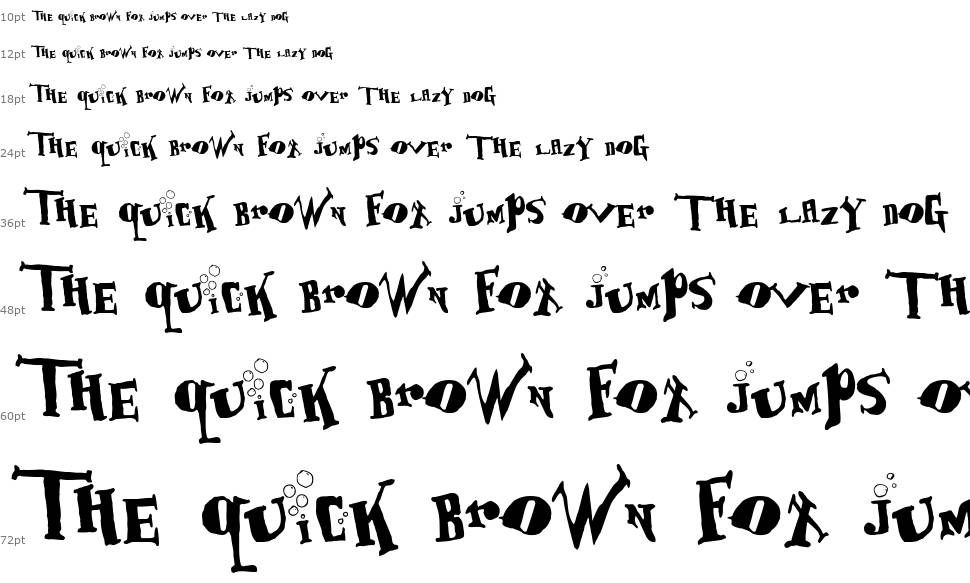 10pt The quick brown fox jumps over The lazy dog
12pt The quick brown fox jumps over The lazy dog
18pt The quick brown fox jumps over The lazy dog
24pt The quick brown fox jumps over The lazy dog
36pt The quick brown fox jumps over The lazy dog
48pt The quick brown fox jumps over Th
60pt The quick brown fox jumps ov
72pt The quick brown fox jum